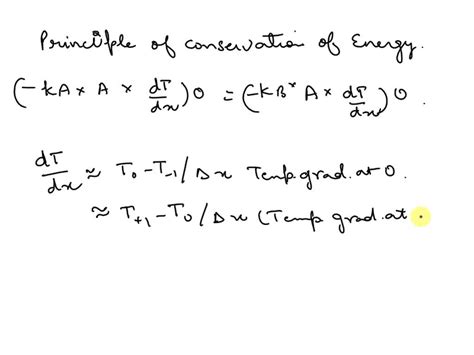 Principle of conservation of Energy.
(-kA × A × dT/dx)0 = (-kB × A × dT/dx)0.
dT/dx ≈ T0 - T-1 / Δx Temp grad. at 0.
≈ T+1 - T0 / Δx (Temp grad. at